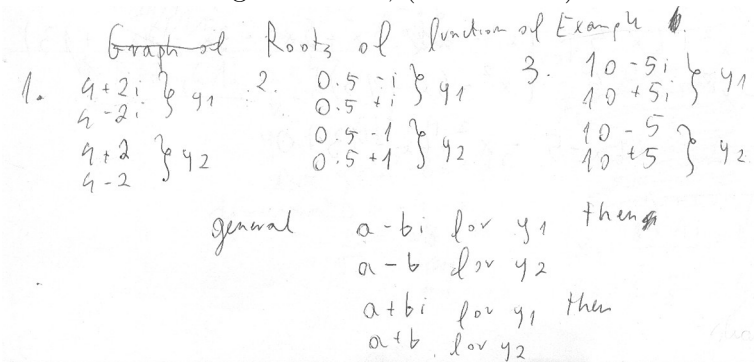 Graph of Roots of function of Example
1. 4+2i } y1
4-2i
4+2 } y2
4-2
2. 0.5 -i } y1
0.5 +i
0.5 -1 } y2
0.5 +1
3. 10 -5i } y1
10 +5i
10 -5 } y2
10 +5
general a-bi for y1 then
a-b for y2
a+bi for y1 then
a+b for y2